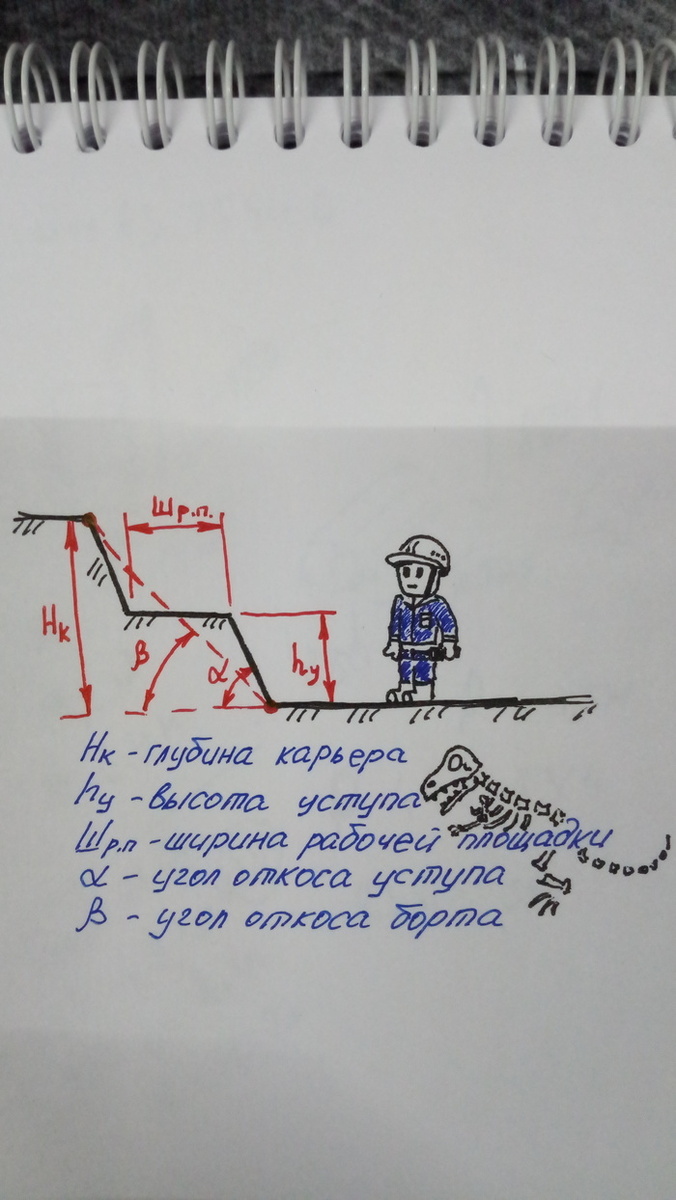 Шр.п.
Нк
β
α
hу
Нк - глубина карьера
hу - высота уступа
Шр.п - ширина рабочей площадки
α - угол откоса уступа
β - угол откоса борта